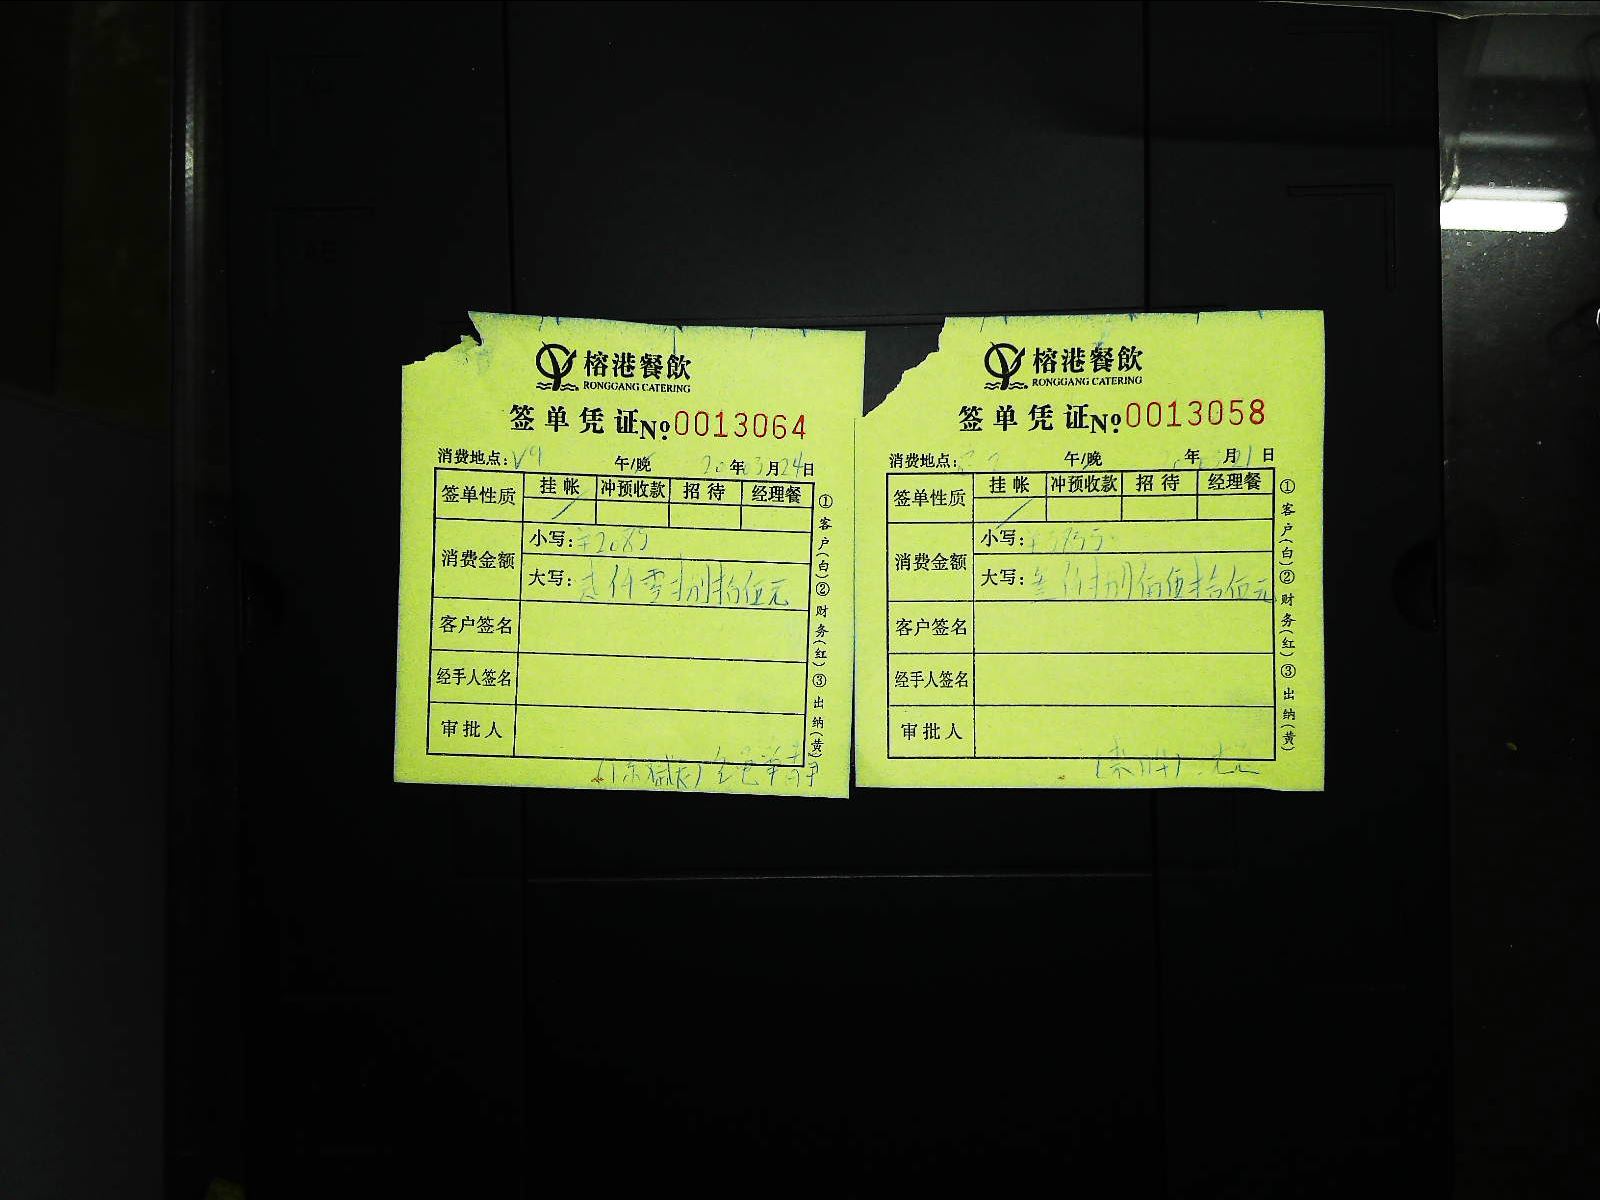 榕港餐飲
RONGGANG CATERING
签单凭证№0013064
消费地点：V9 午/晚 20年03月24日
签单性质 挂帐 冲预收款 招待 经理餐
消费金额 小写：¥2085
大写：仟零捌拾伍元
客户签名
经手人签名
审批人
①客户(白)②财务(红)③出纳(黄)
榕港餐飲
RONGGANG CATERING
签单凭证№0013058
消费地点： 午/晚 年 月21日
签单性质 挂帐 冲预收款 招待 经理餐
消费金额 小写：¥3855
大写：叁仟捌佰伍拾伍元
客户签名
经手人签名
审批人
①客户(白)②财务(红)③出纳(黄)